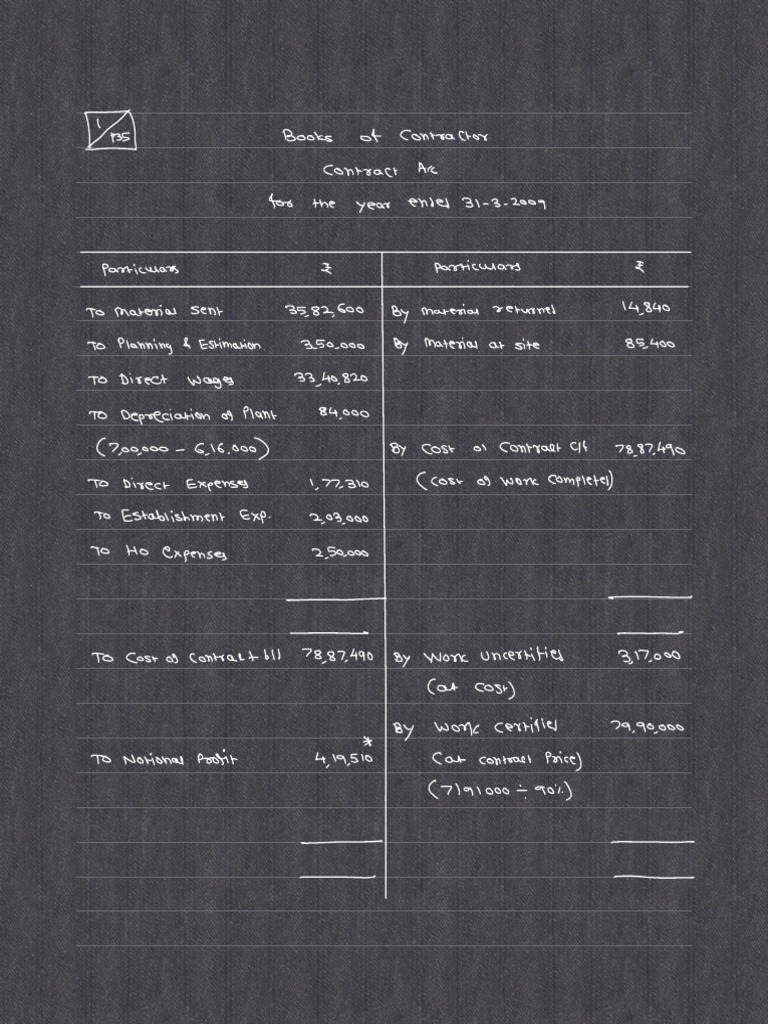 1/P35
Books of Contractor
Contract A/c
for the year ended 31-3-2009
Particulars ₹ Particulars ₹
To Material Sent 35,82,600 By Material returned 14,840
To Planning & Estimation 3,50,000 By Material at site 85,400
To Direct Wages 33,40,820
To Depreciation of Plant 84,000
(7,00,000 - 6,16,000) By Cost of Contract c/f 78,87,490
To Direct Expenses 1,77,310 (Cost of Work Completed)
To Establishment Exp. 2,03,000
To HO Expenses 2,50,000
To Cost of Contract b/d 78,87,490 By Work Uncertified 3,17,000
(at cost)
By Work Certified 79,90,000
*
To Notional Profit 4,19,510 (at contract Price)
(7191000 ÷ 90%)